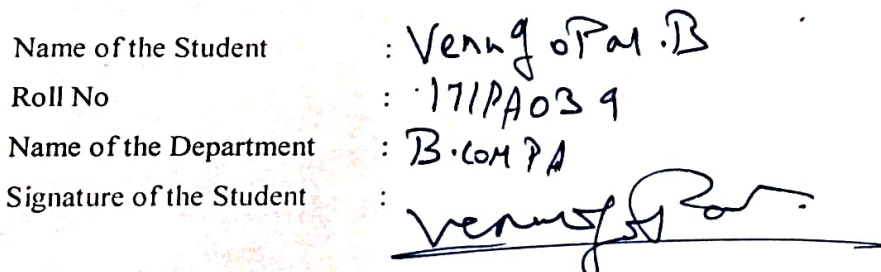 Name of the Student : Venugopal.B
Roll No : 171PA039
Name of the Department : B.COM PA
Signature of the Student : Venugopal